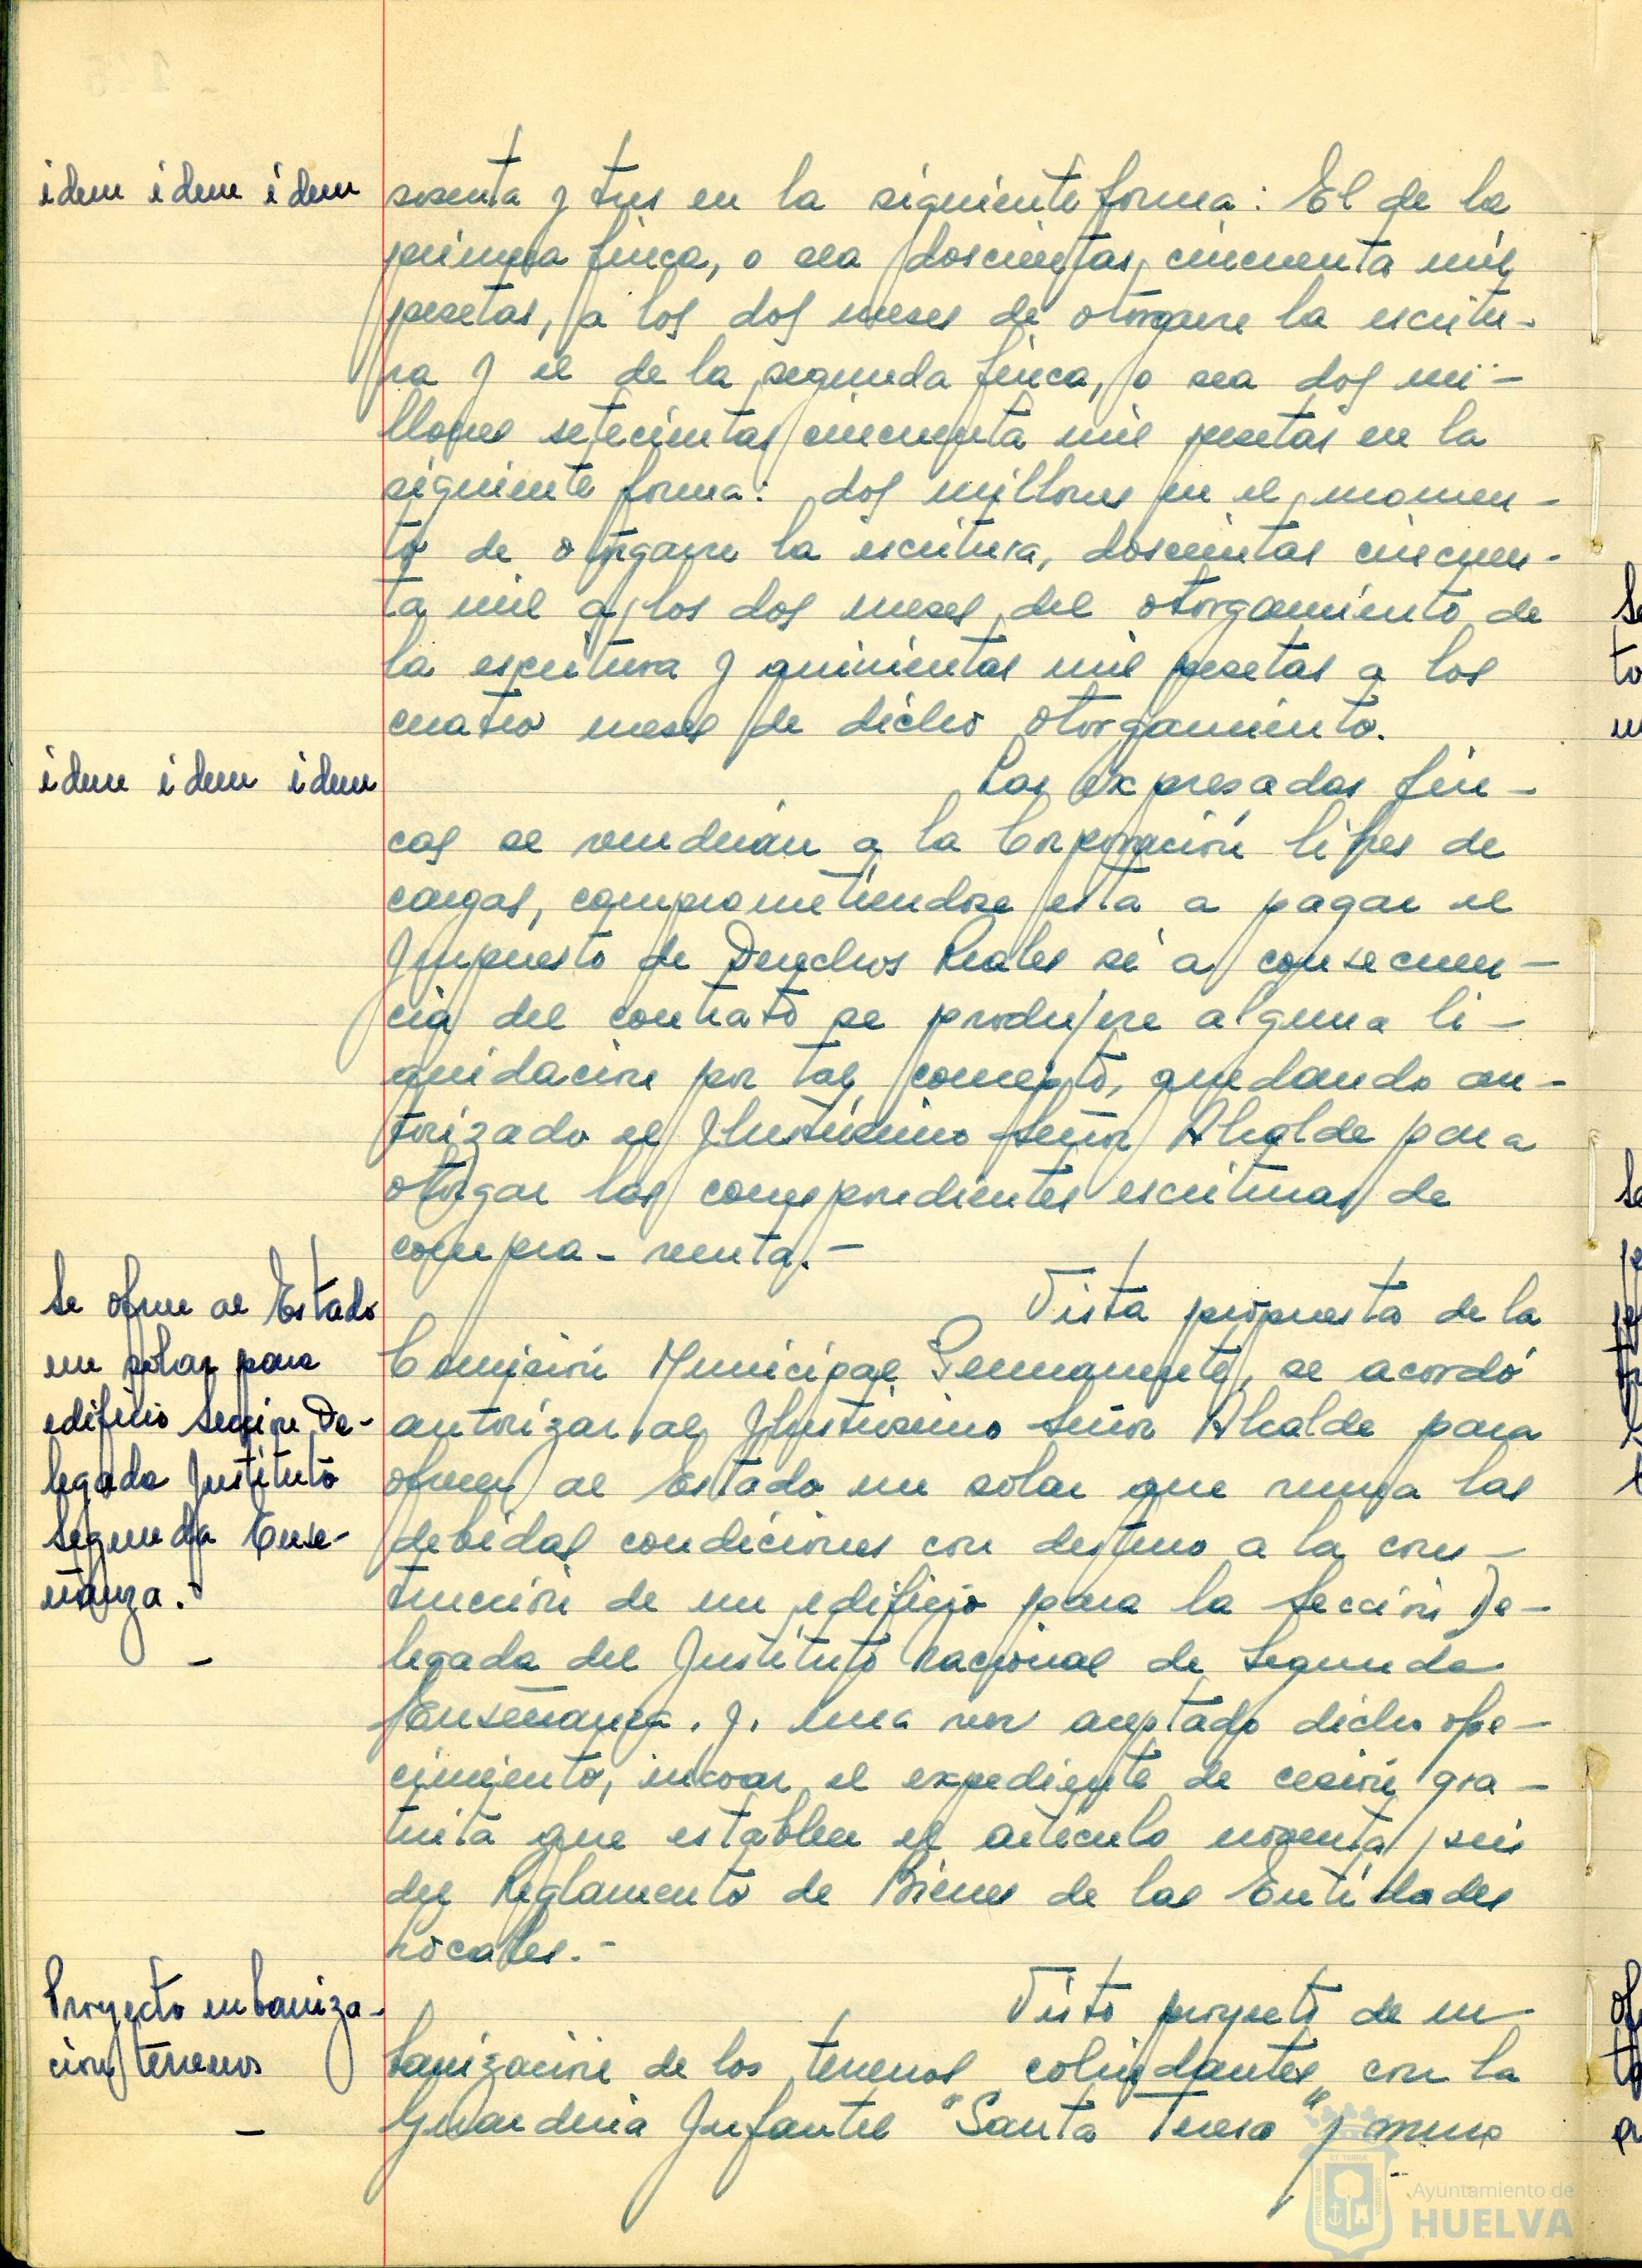 idem idem idem
sesenta y tres en la siguiente forma: El de la
primera finca, o sea doscientas cincuenta mil
pesetas, a los dos meses de otorgarse la escritu-
ra y el de la segunda finca, o sea dos mi-
llones setecientas cincuenta mil pesetas en la
siguiente forma: dos millones en el momen-
to de otorgarse la escritura, doscientas cincuen-
ta mil a los dos meses del otorgamiento de
la escritura y quinientas mil pesetas a los
cuatro meses de dicho otorgamiento.
idem idem idem
Las expresadas fin-
cas se venderán a la Corporación libres de
cargas, comprometiendose esta a pagar el
Impuesto de Derechos Reales si a consecuen-
cia del contrato se produjere alguna li-
quidación por tal concepto, quedando au-
torizado el Ilustrísimo Señor Alcalde para
otorgar las correspondientes escrituras de
compra-venta.-
Se ofrece al Estado
un solar para
edificio Sección De-
legada Instituto
Segunda Ense-
ñanza.-
Vista propuesta de la
Comisión Municipal Permanente, se acordó
autorizar al Ilustrisimo Señor Alcalde para
ofrecer al Estado un solar que reuna las
debidas condiciones con destino a la cons-
trucción de un edificio para la Sección De-
legada del Instituto Nacional de Segunda
Enseñanza. y, una vez aceptado dicho ofre-
cimiento, incoar el expediente de cesión gra-
tuita que establece el artículo noventa y seis
del Reglamento de Bienes de las Entidades
Locales.-
Proyecto urbaniza-
cion terrenos
Visto proyecto de ur-
banización de los terrenos colindantes con la
Guarderia Infantil "Santa Teresa" y muro
Ayuntamiento de
HUELVA